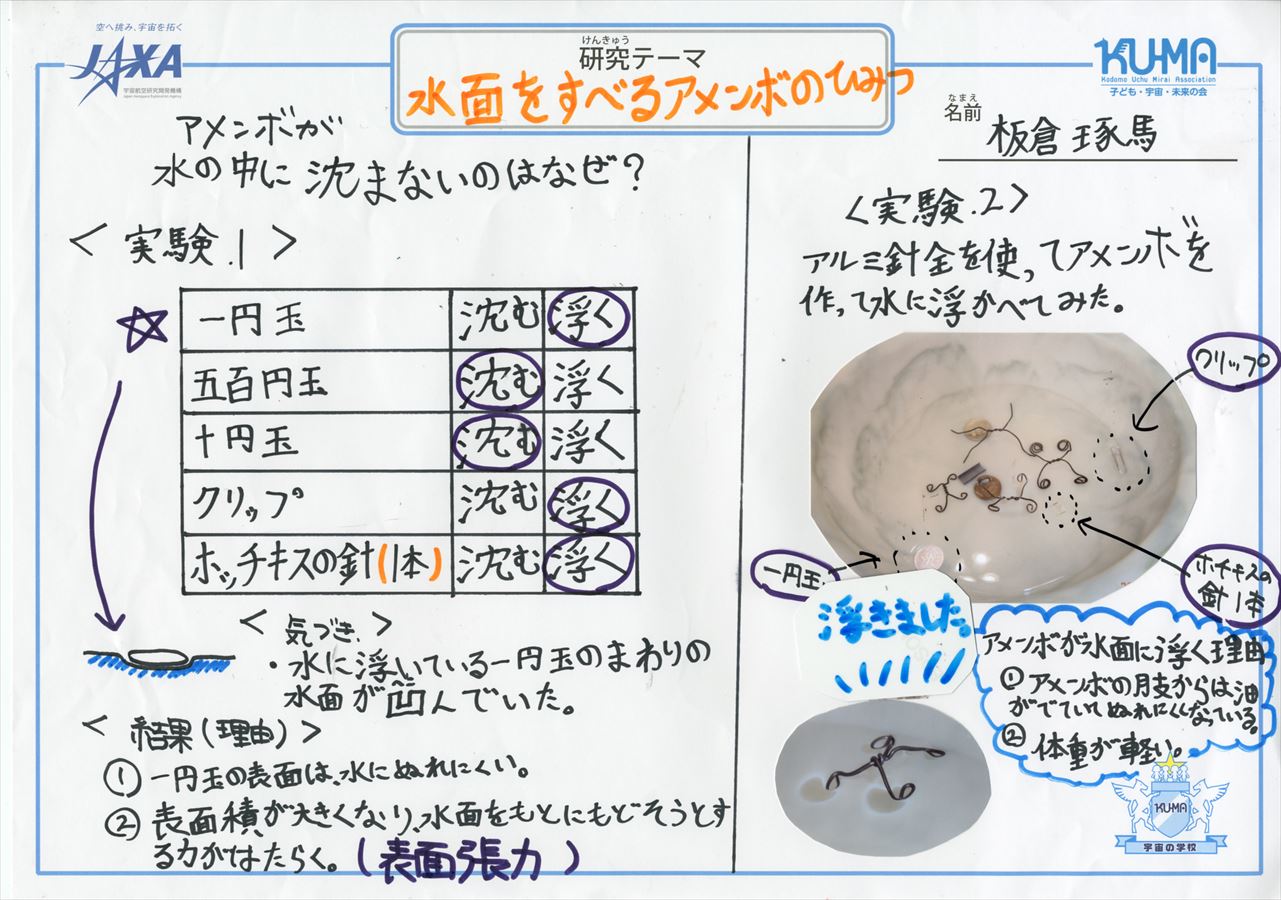 空へ挑み、宇宙を拓く
JAXA
宇宙航空研究開発機構
Japan Aerospace Exploration Agency
けんきゅう
研究テーマ
水面をすべるアメンボのひみつ
KU-MA
Kodomo Uchu Mirai Association
子ども・宇宙・未来の会
なまえ
名前
板倉琢馬
アメンボが
水の中に沈まないのはなぜ?
<実験.1>
一円玉 沈む 浮く
五百円玉 沈む 浮く
十円玉 沈む 浮く
クリップ 沈む 浮く
ホッチキスの針(1本) 沈む 浮く
<気づき.>
・水に浮いている一円玉のまわりの
水面が凹んでいた。
<結果(理由)>
① 一円玉の表面は、水にぬれにくい。
② 表面積が大きくなり、水面をもとにもどそうとす
る力がはたらく。(表面張力)
<実験.2>
アルミ針金を使ってアメンボを
作って水に浮かべてみた。
クリップ
一円玉
ホチキスの
針1本
浮きました。
アメンボが水面に浮く理由
① アメンボの肢からは油
がでていてぬれにくくなっている。
② 体重が軽い。
KU-MA
宇宙の学校